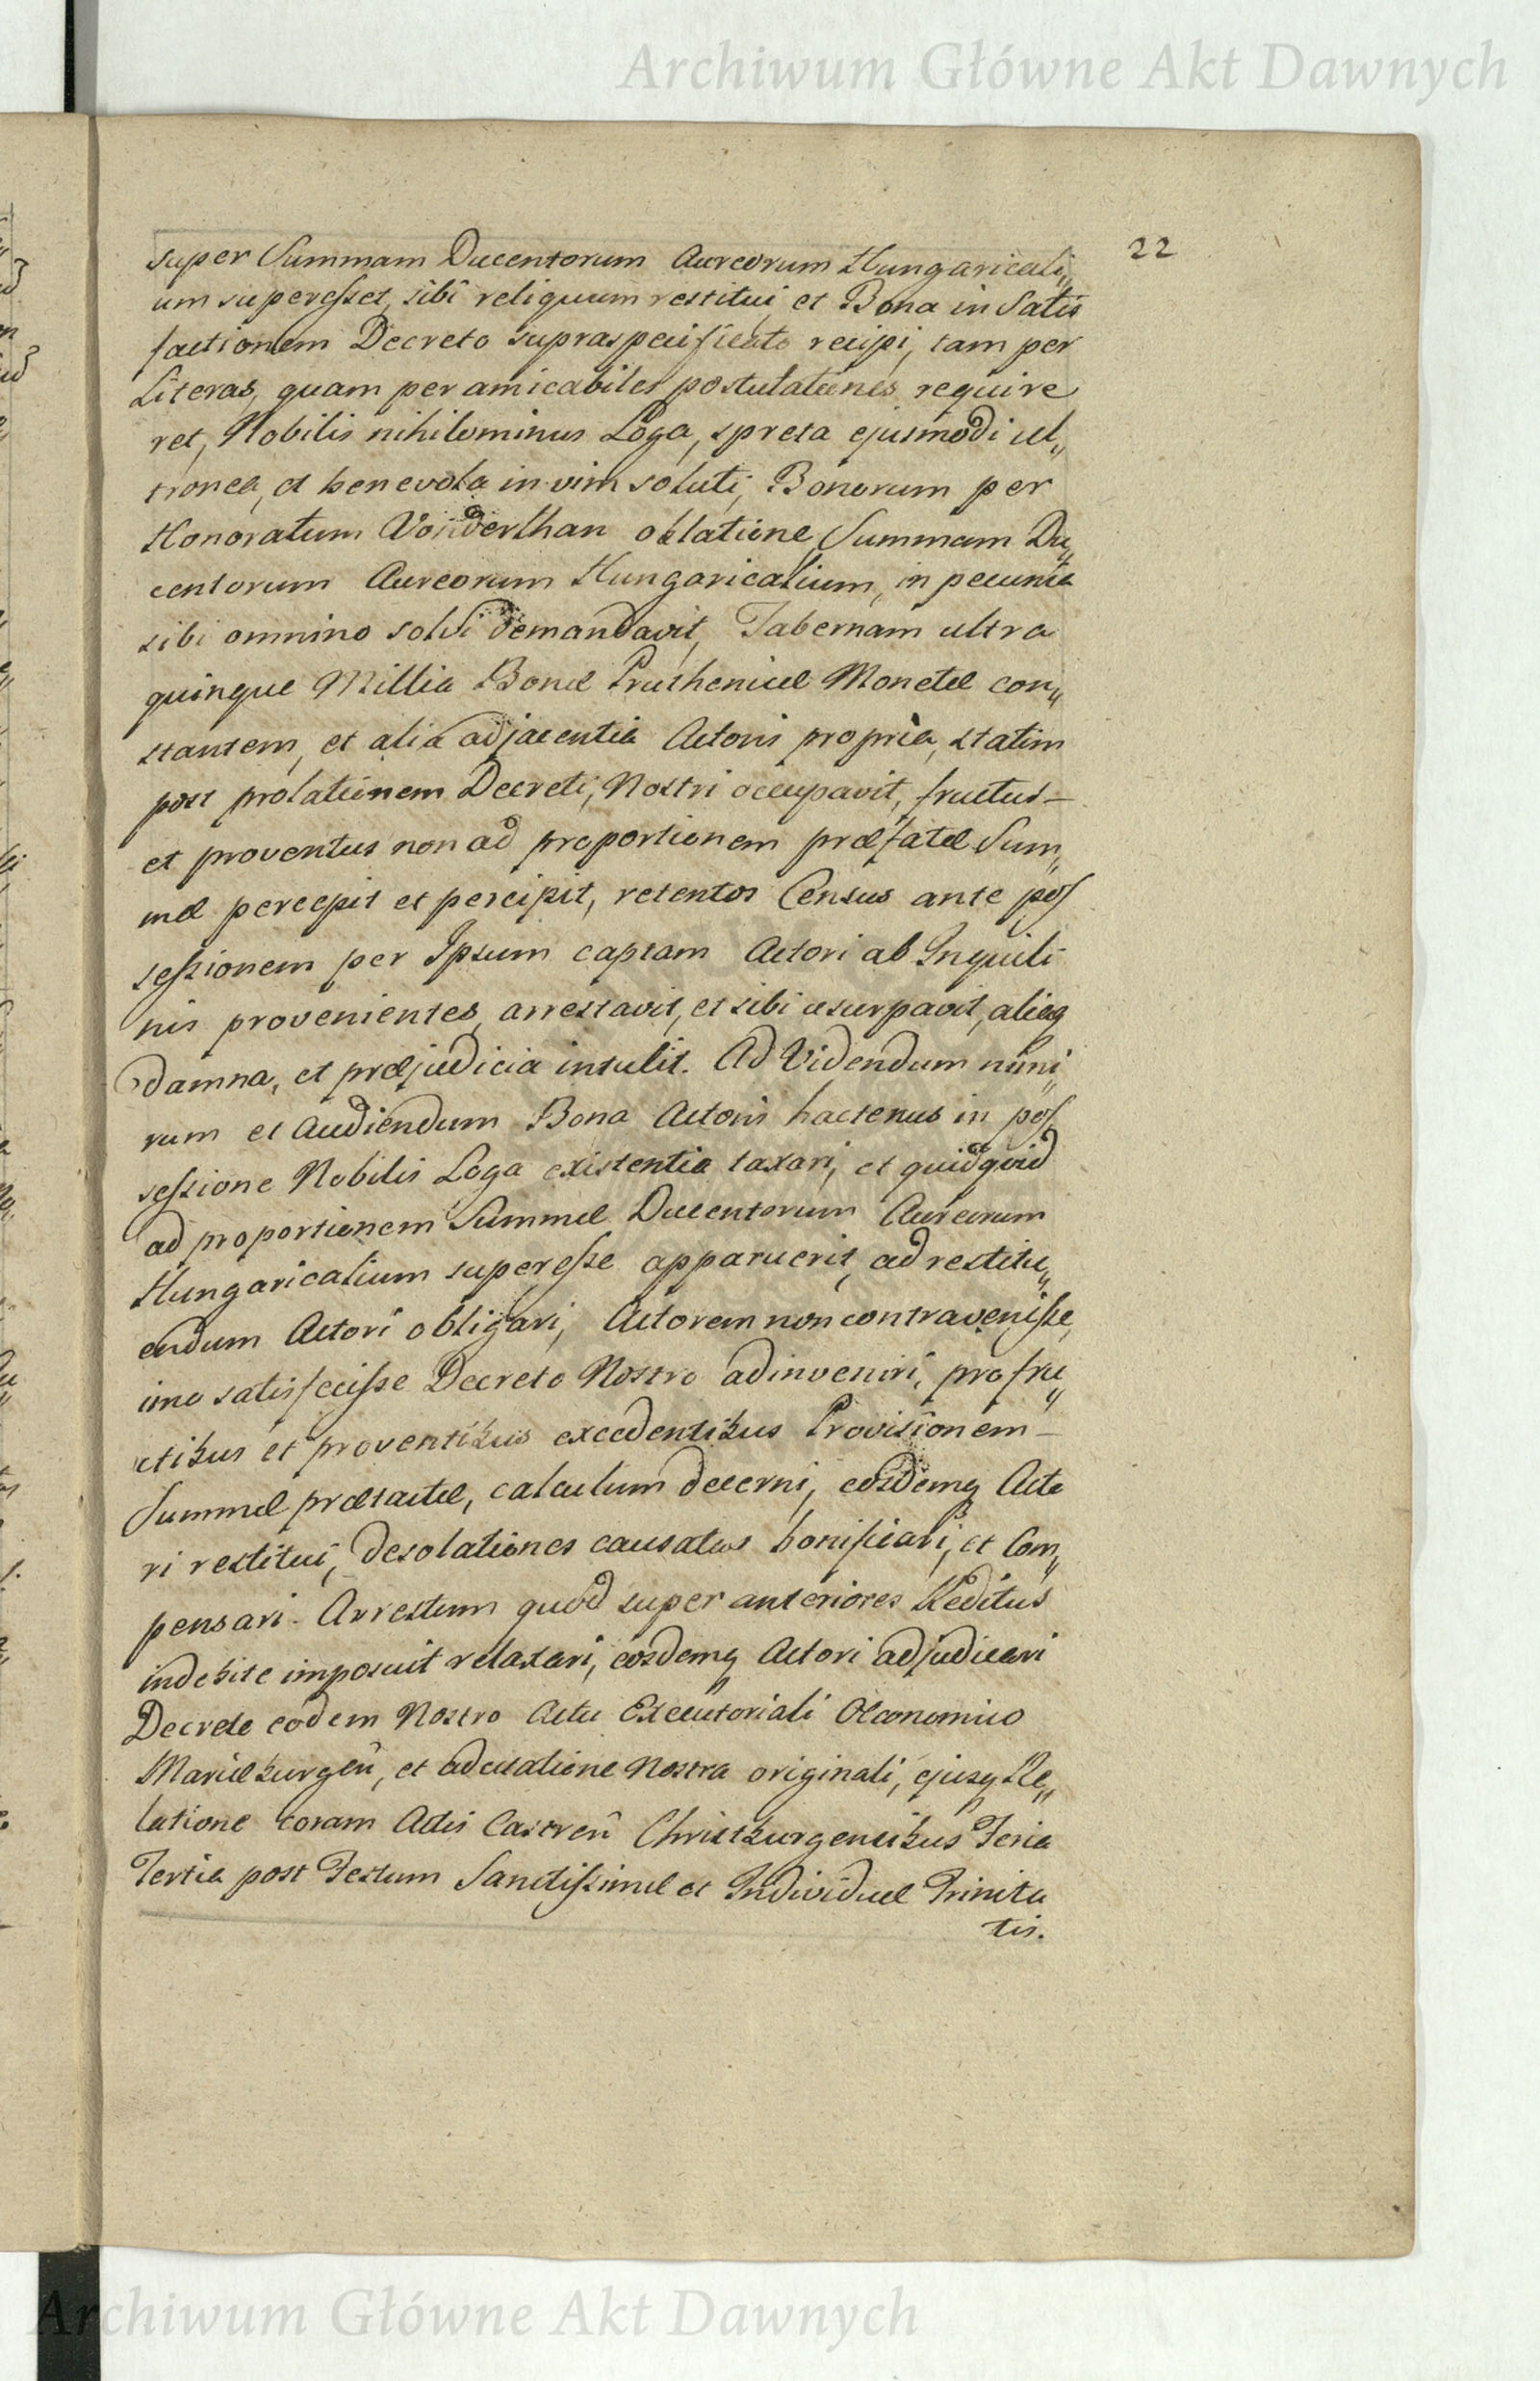 Archiwum Główne Akt Dawnych
22
super Summam Ducentorum Aureorum Hungaricali„
um superesset, sibi reliquum restitui, et Bona in Satis
factionem Decreto supraspecificato recipi, tam per
Literas, quam per amicabiles postulationes require
ret, Nobilis nihilominus Loga, spreta ejusmodi ul„
tronea, et benevola in vim soluti, Bonorum per
Honoratum Vonderthan oblatione, Summam Du„
centorum Aureorum Hungaricalium, in pecunia
sibi omnino solvi demandavit, Tabernam ultra
quinque Millia Bonæ Pruthenicæ Monetæ con„
stantem, et alia adjacentia Actoris propria, statim
post prolationem Decreti, Nostri occupavit, fructus—
et proventus non ad proportionem præfatæ Sum„
mæ percepit et percipit, retentos Census ante pos
sessionem per Ipsum captam Actori ab Inquili
nis provenientes, arrestavit, et sibi usurpavit, aliaq
damna, et præjudicia intulit. Ad Videndum nimi„
rum et Audiendum Bona Actoris hactenus in pos
sessione Nobilis Loga existentia taxari, et quidquid
ad proportionem Summæ Ducentorum Aureorum
Hungaricalium superesse apparuerit, ad restitu„
endum Actori obligari, Actorem non contravenisse,
imo satisfecisse Decreto Nostro adinveniri, pro fru„
ctibus et proventibus excedentibus Provisionem—
Summæ prætactæ, calculum decerni, eosdemq Acto
ri restitui, desolationes causatas bonificari, et Com„
pensari. Arrestum quod super anteriores Reditus
indebite imposuit relaxari, eosdemq Actori adjudicari
Decreto eodem Nostro Actu Executoriali Oeconomico
Mariæburgen̄, et adcitatione Nostra originali, ejusq Re„
latione coram Actis Castren̄ Christburgensibus Feria
Tertia post Festum Sanctissimæ et Individuæ Trinita
tis.
Archiwum Główne Akt Dawnych